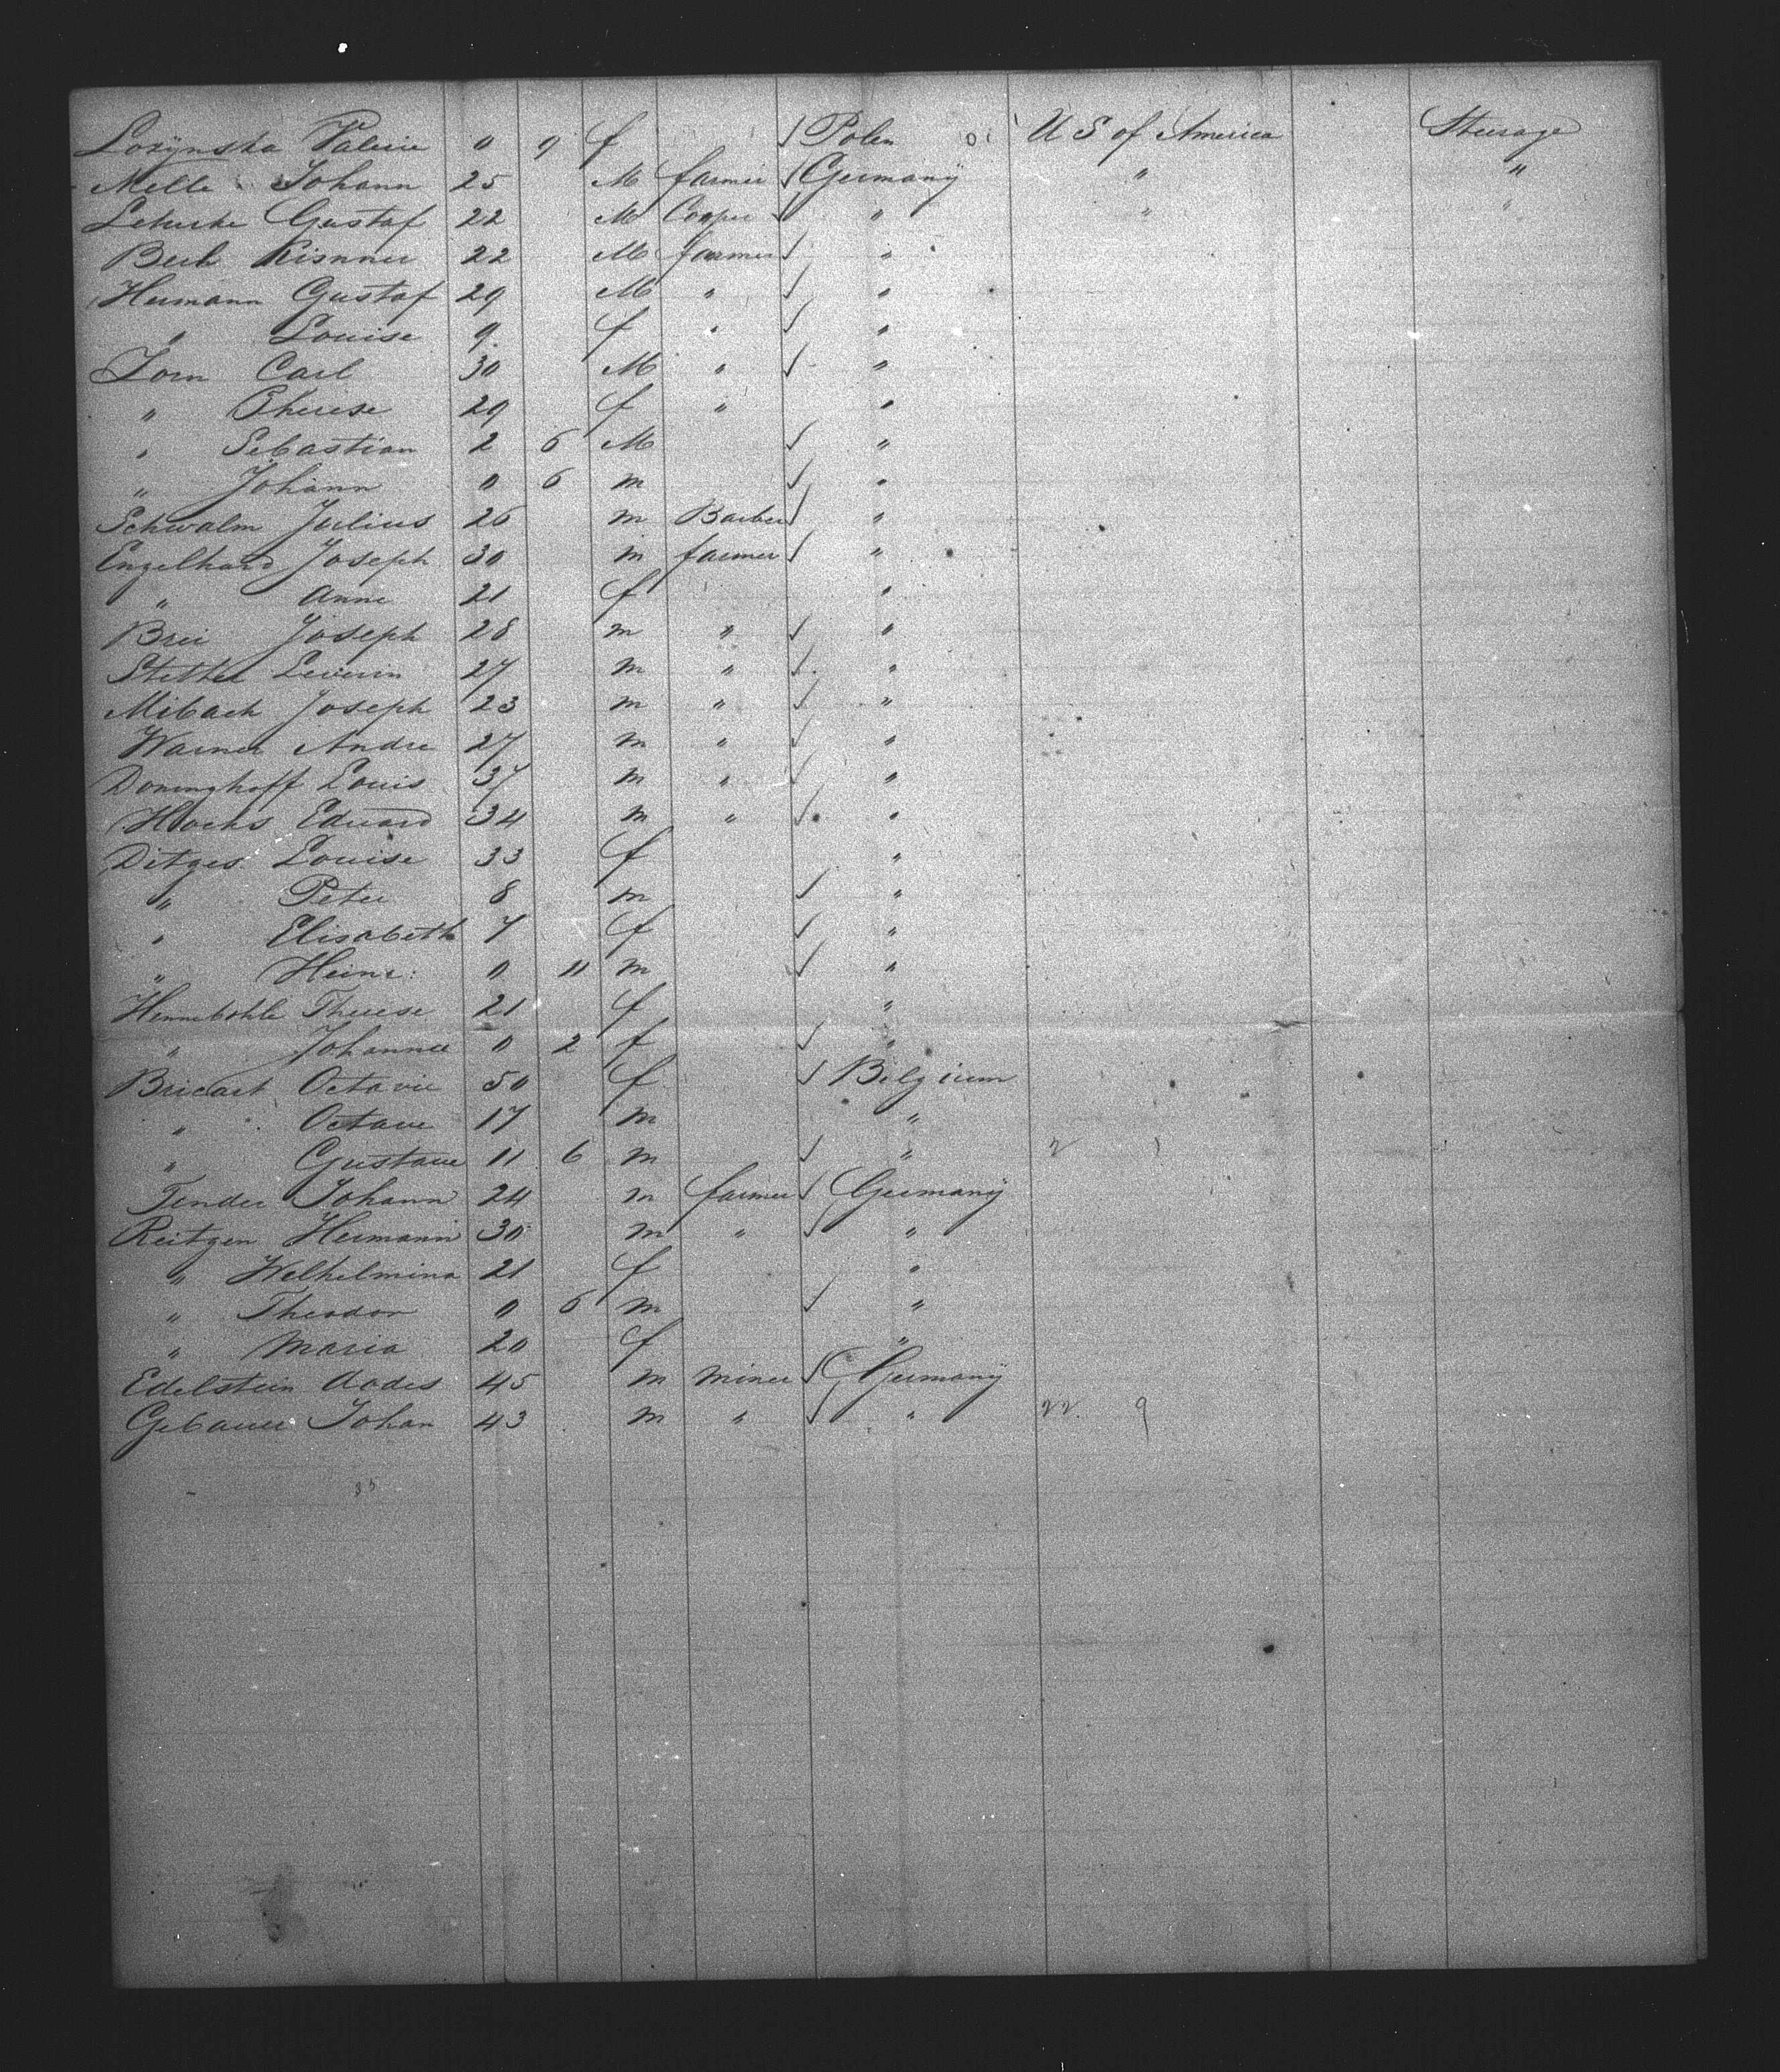 Lozÿnska Valerie 0 9 f √ Polen 0 1 U S of America Steerage
Melle Johann 25 M farmer √ Germanÿ " "
Lehuske Gustaf 22 M Cooper √ " " "
Beck 22 M farmer √ "
Hermann Gustaf 29 M " √ "
" Louise 9 f " √ "
Jorn Carl 30 M " √ "
" Therese 29 f " "
" Sebastian 2 6 M √ "
" Johann 0 6 m √ "
Schwalm Julius 26 m Barber √ "
Engelhard Joseph 30 m farmer √ "
" Anne 21 f "
Brei Joseph 28 m " √ "
Stetter Severin 27 m " √ "
Mibach Joseph 23 m " √ "
Warner Andre 27 m " √ "
Doninghoff Louis 37 m " √ "
Hocks Eduard 34 m " √ "
Ditges Louise 33 f "
" Peter 8 m √ "
" Elisabeth 7 f √ "
" Heinr: 0 11 m √ "
Hennebohle Therese 21 f "
" Johannee 0 2 f √ "
Bricart Octavie 50 f √ Belgium
" Octave 17 m "
" Gustave 11 6 m √ " 2 1
Tender Johann 24 m farmer √ Germanÿ
Reitgen Hermann 30 m " √ "
" Welhelmina 21 f "
" Theodor 0 6 m √ "
" Maria 20 f "
Edelstein 45 m miner √ Germanÿ
Gebauer Johan 43 m " √ " 22 9
35